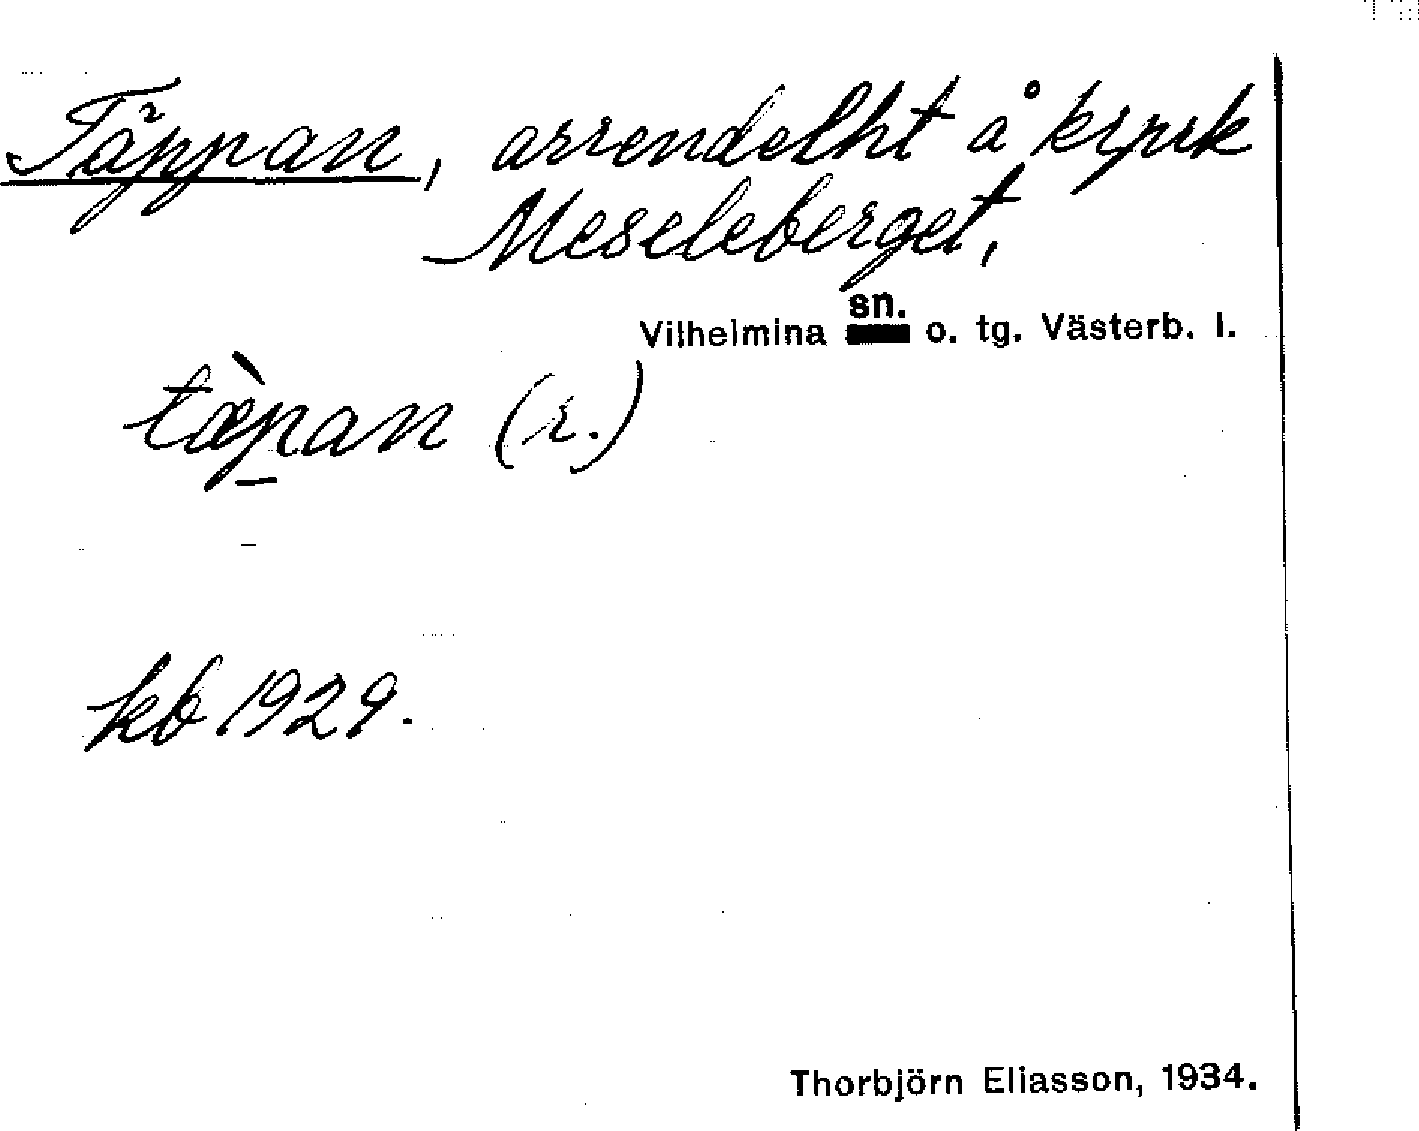 Täppan, arrendelht å krpark
Meseleberget,
Vilhelmina sn. o. tg. Västerb. l.
tæ̀pan (r.)
kb 1929.
Thorbjörn Eliasson, 1934.